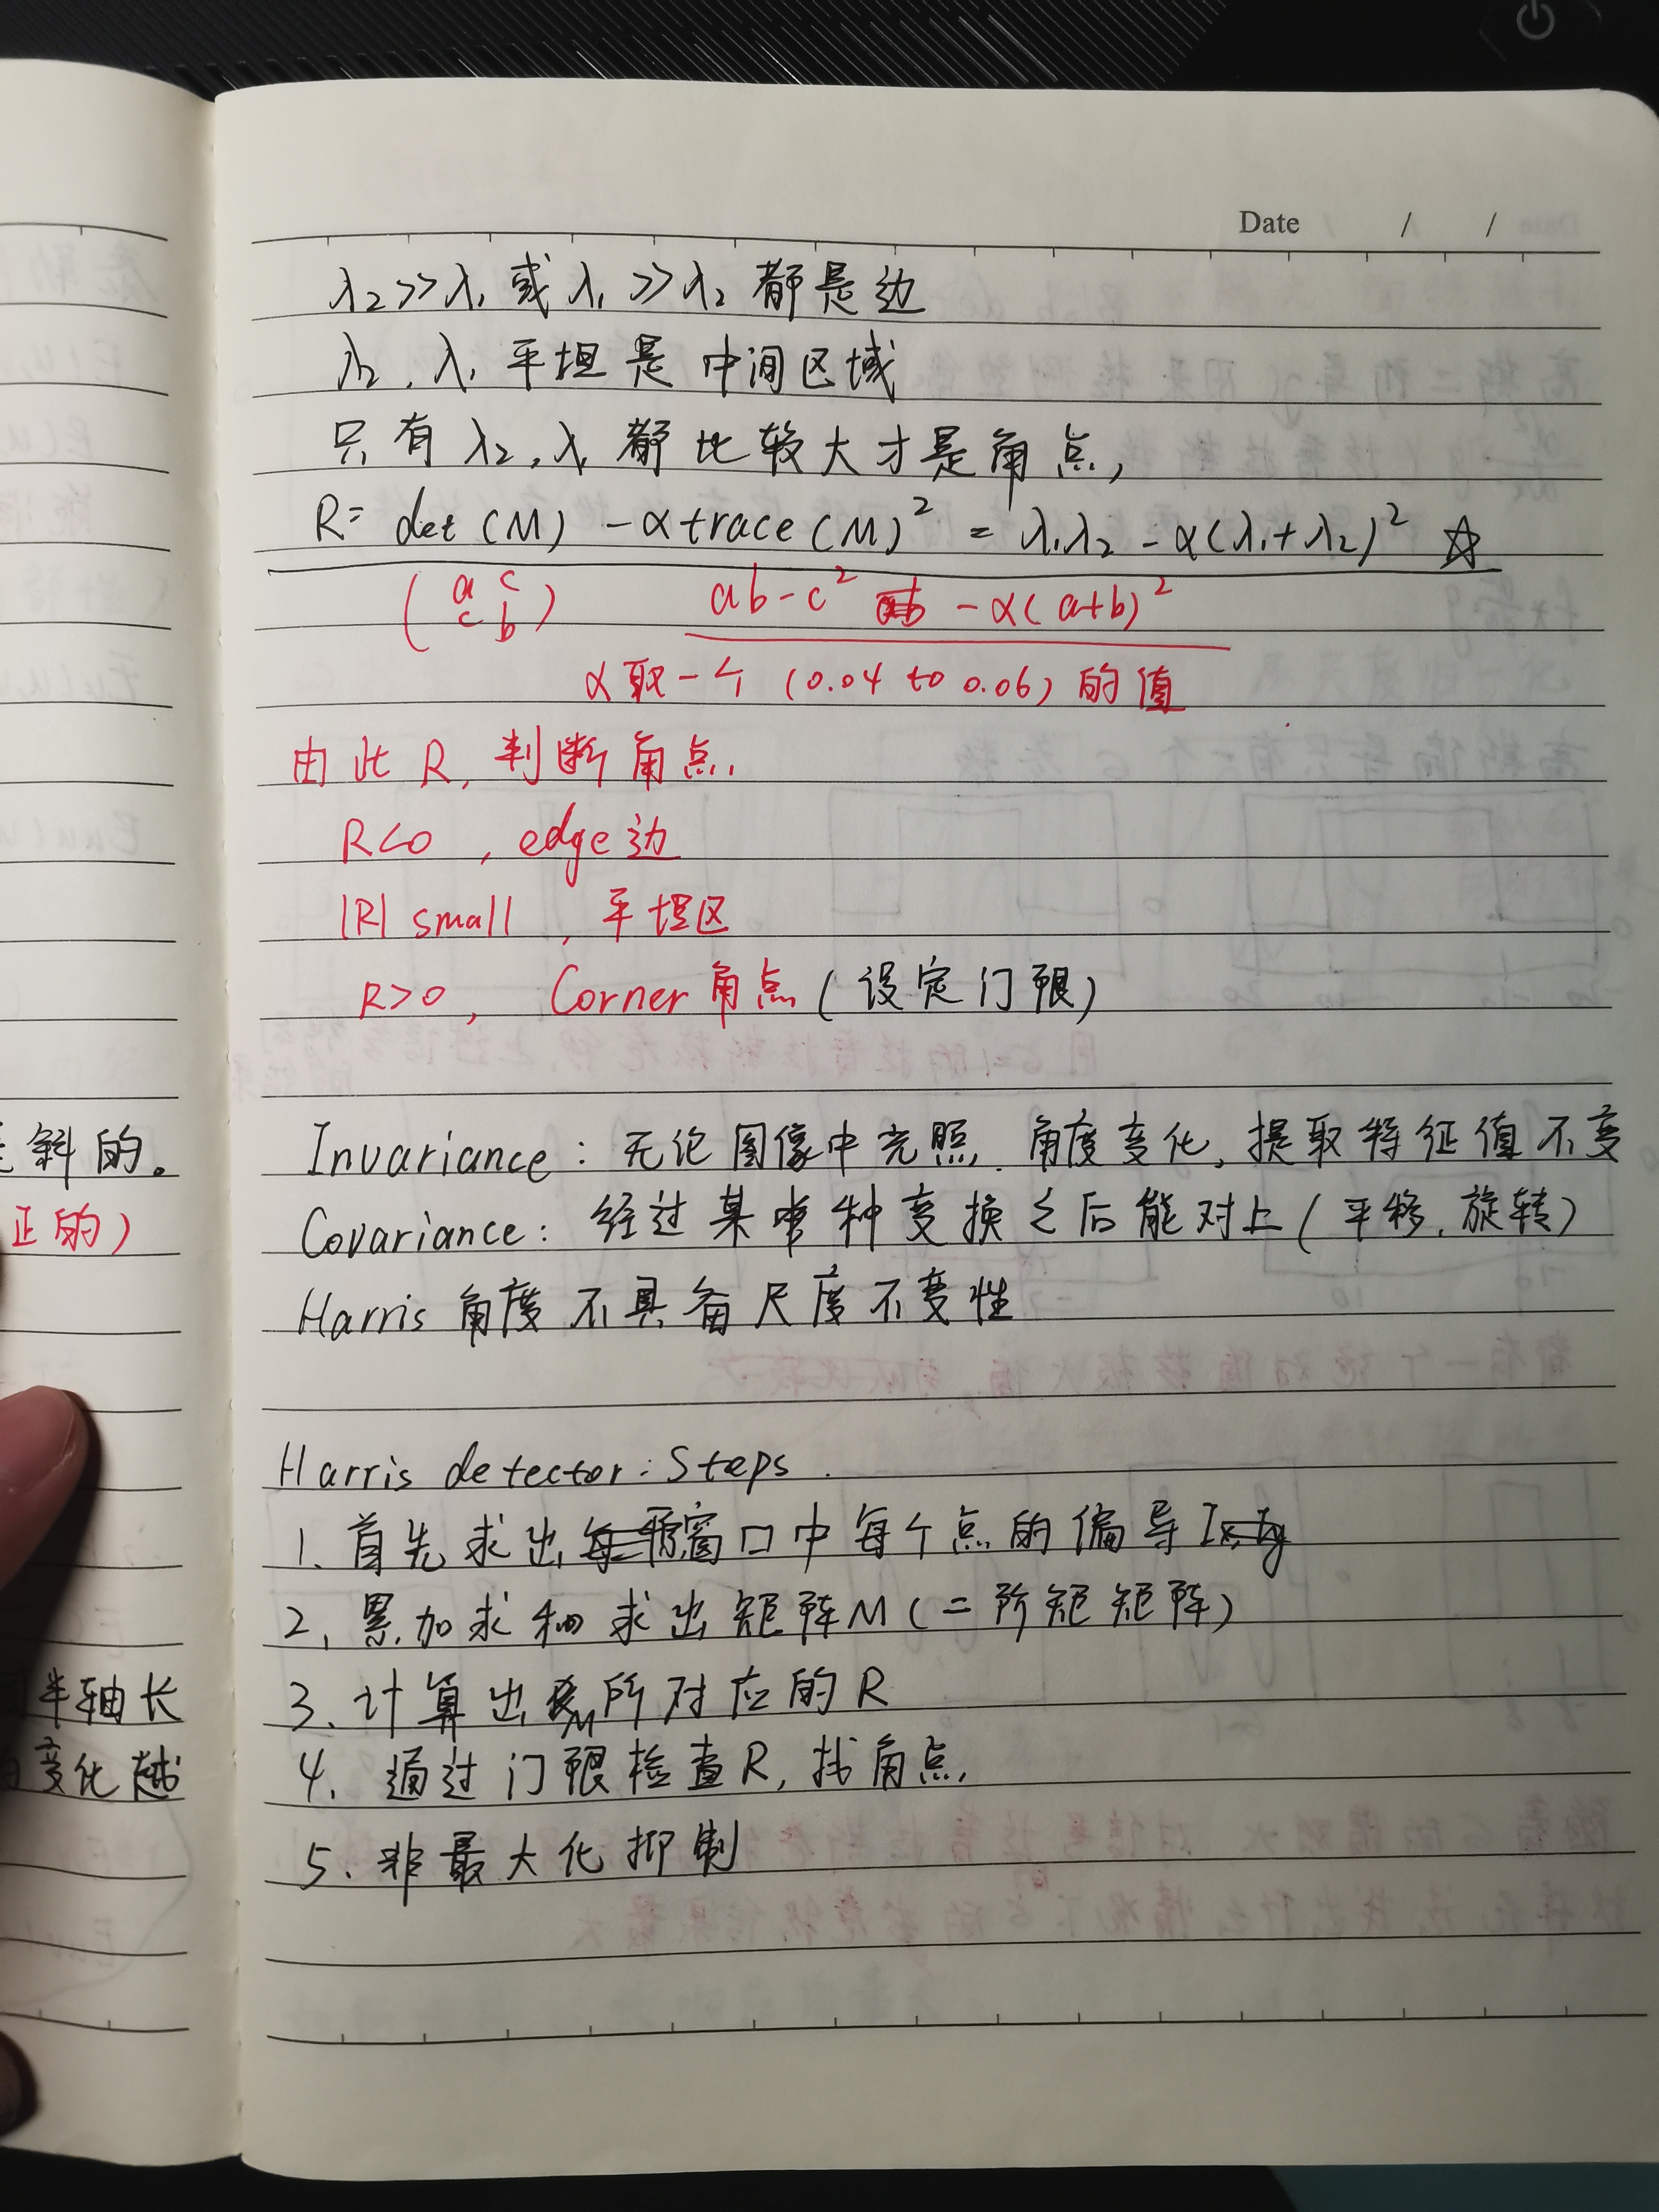 Date / /
λ₂>>λ₁ 或 λ₁>>λ₂ 都是边
λ₂,λ₁ 平坦是中间区域
只有 λ₂,λ₁ 都比较大才是角点,
R= det(M) -αtrace(M)² = λ₁λ₂ -α(λ₁+λ₂)² ☆
(a c
c b) ab-c² -α(a+b)²
α取一个 (0.04 to 0.06) 的值
由此 R, 判断角点.
R<0 , edge 边
|R| small , 平坦区
R>0, Corner 角点 (设定门限)
Invariance: 无论图像中光照.角度变化,提取特征值不变
Covariance: 经过某种变换之后能对上(平移.旋转)
Harris 角度不具备尺度不变性
Harris detector: Steps.
1. 首先求出窗口中每个点的偏导
2, 累加求和求出矩阵M(二阶矩矩阵)
3. 计算出M所对应的R
4. 通过门限检查R, 找角点,
5. 非最大化抑制
斜的。
正的)
半轴长
变化越